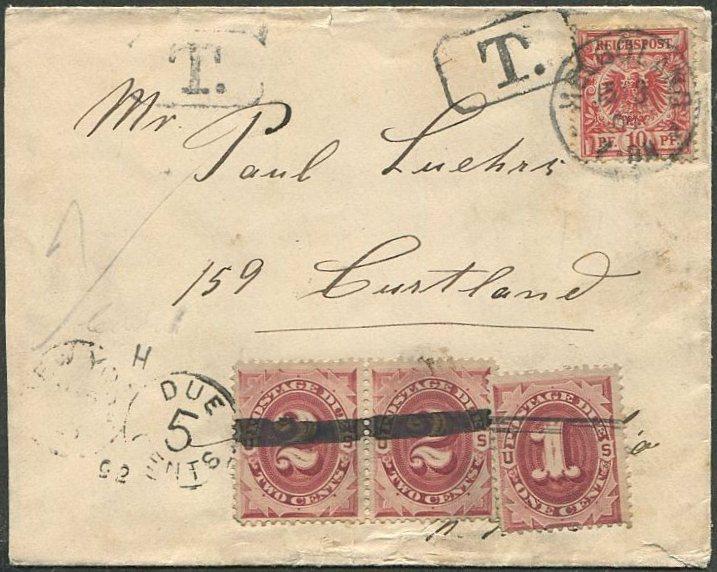 T.
T.
REICHSPOST
10 PF. 10 PF.
Mr. Paul Luehrs
159 Curtland
H
DUE
5
CENTS
POSTAGE DUE
U 2 S
TWO CENTS
POSTAGE DUE
U 2 S
TWO CENTS
POSTAGE DUE
U 1 S
ONE CENT